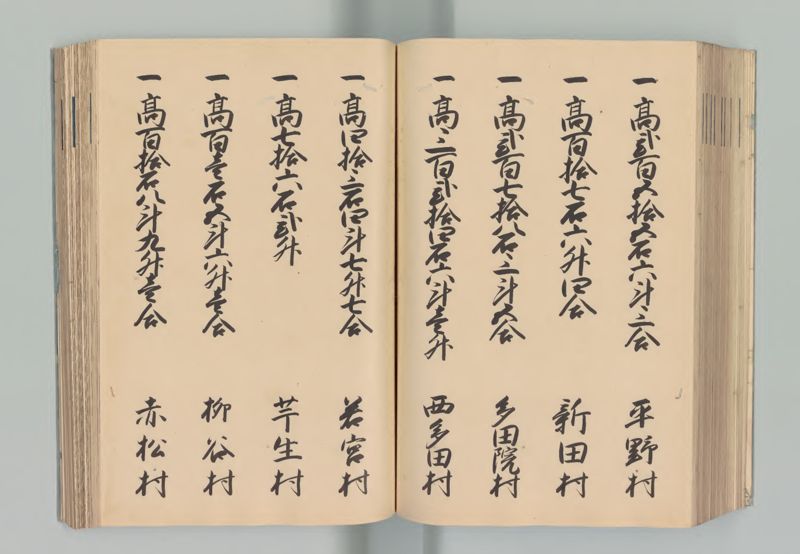 一 高弐百五拾五石六斗三合 平野村
一 高百拾七石六升四合 新田村
一 高弐百七拾八石三斗五合 多田院村
一 高三百弐拾四石六斗壱升 西多田村
一 高四拾三石四斗七升七合 若宮村
一 高七拾六石弐升 芋生村
一 高百壱石五斗六升壱合 柳谷村
一 高百拾石八斗九升壱合 赤松村